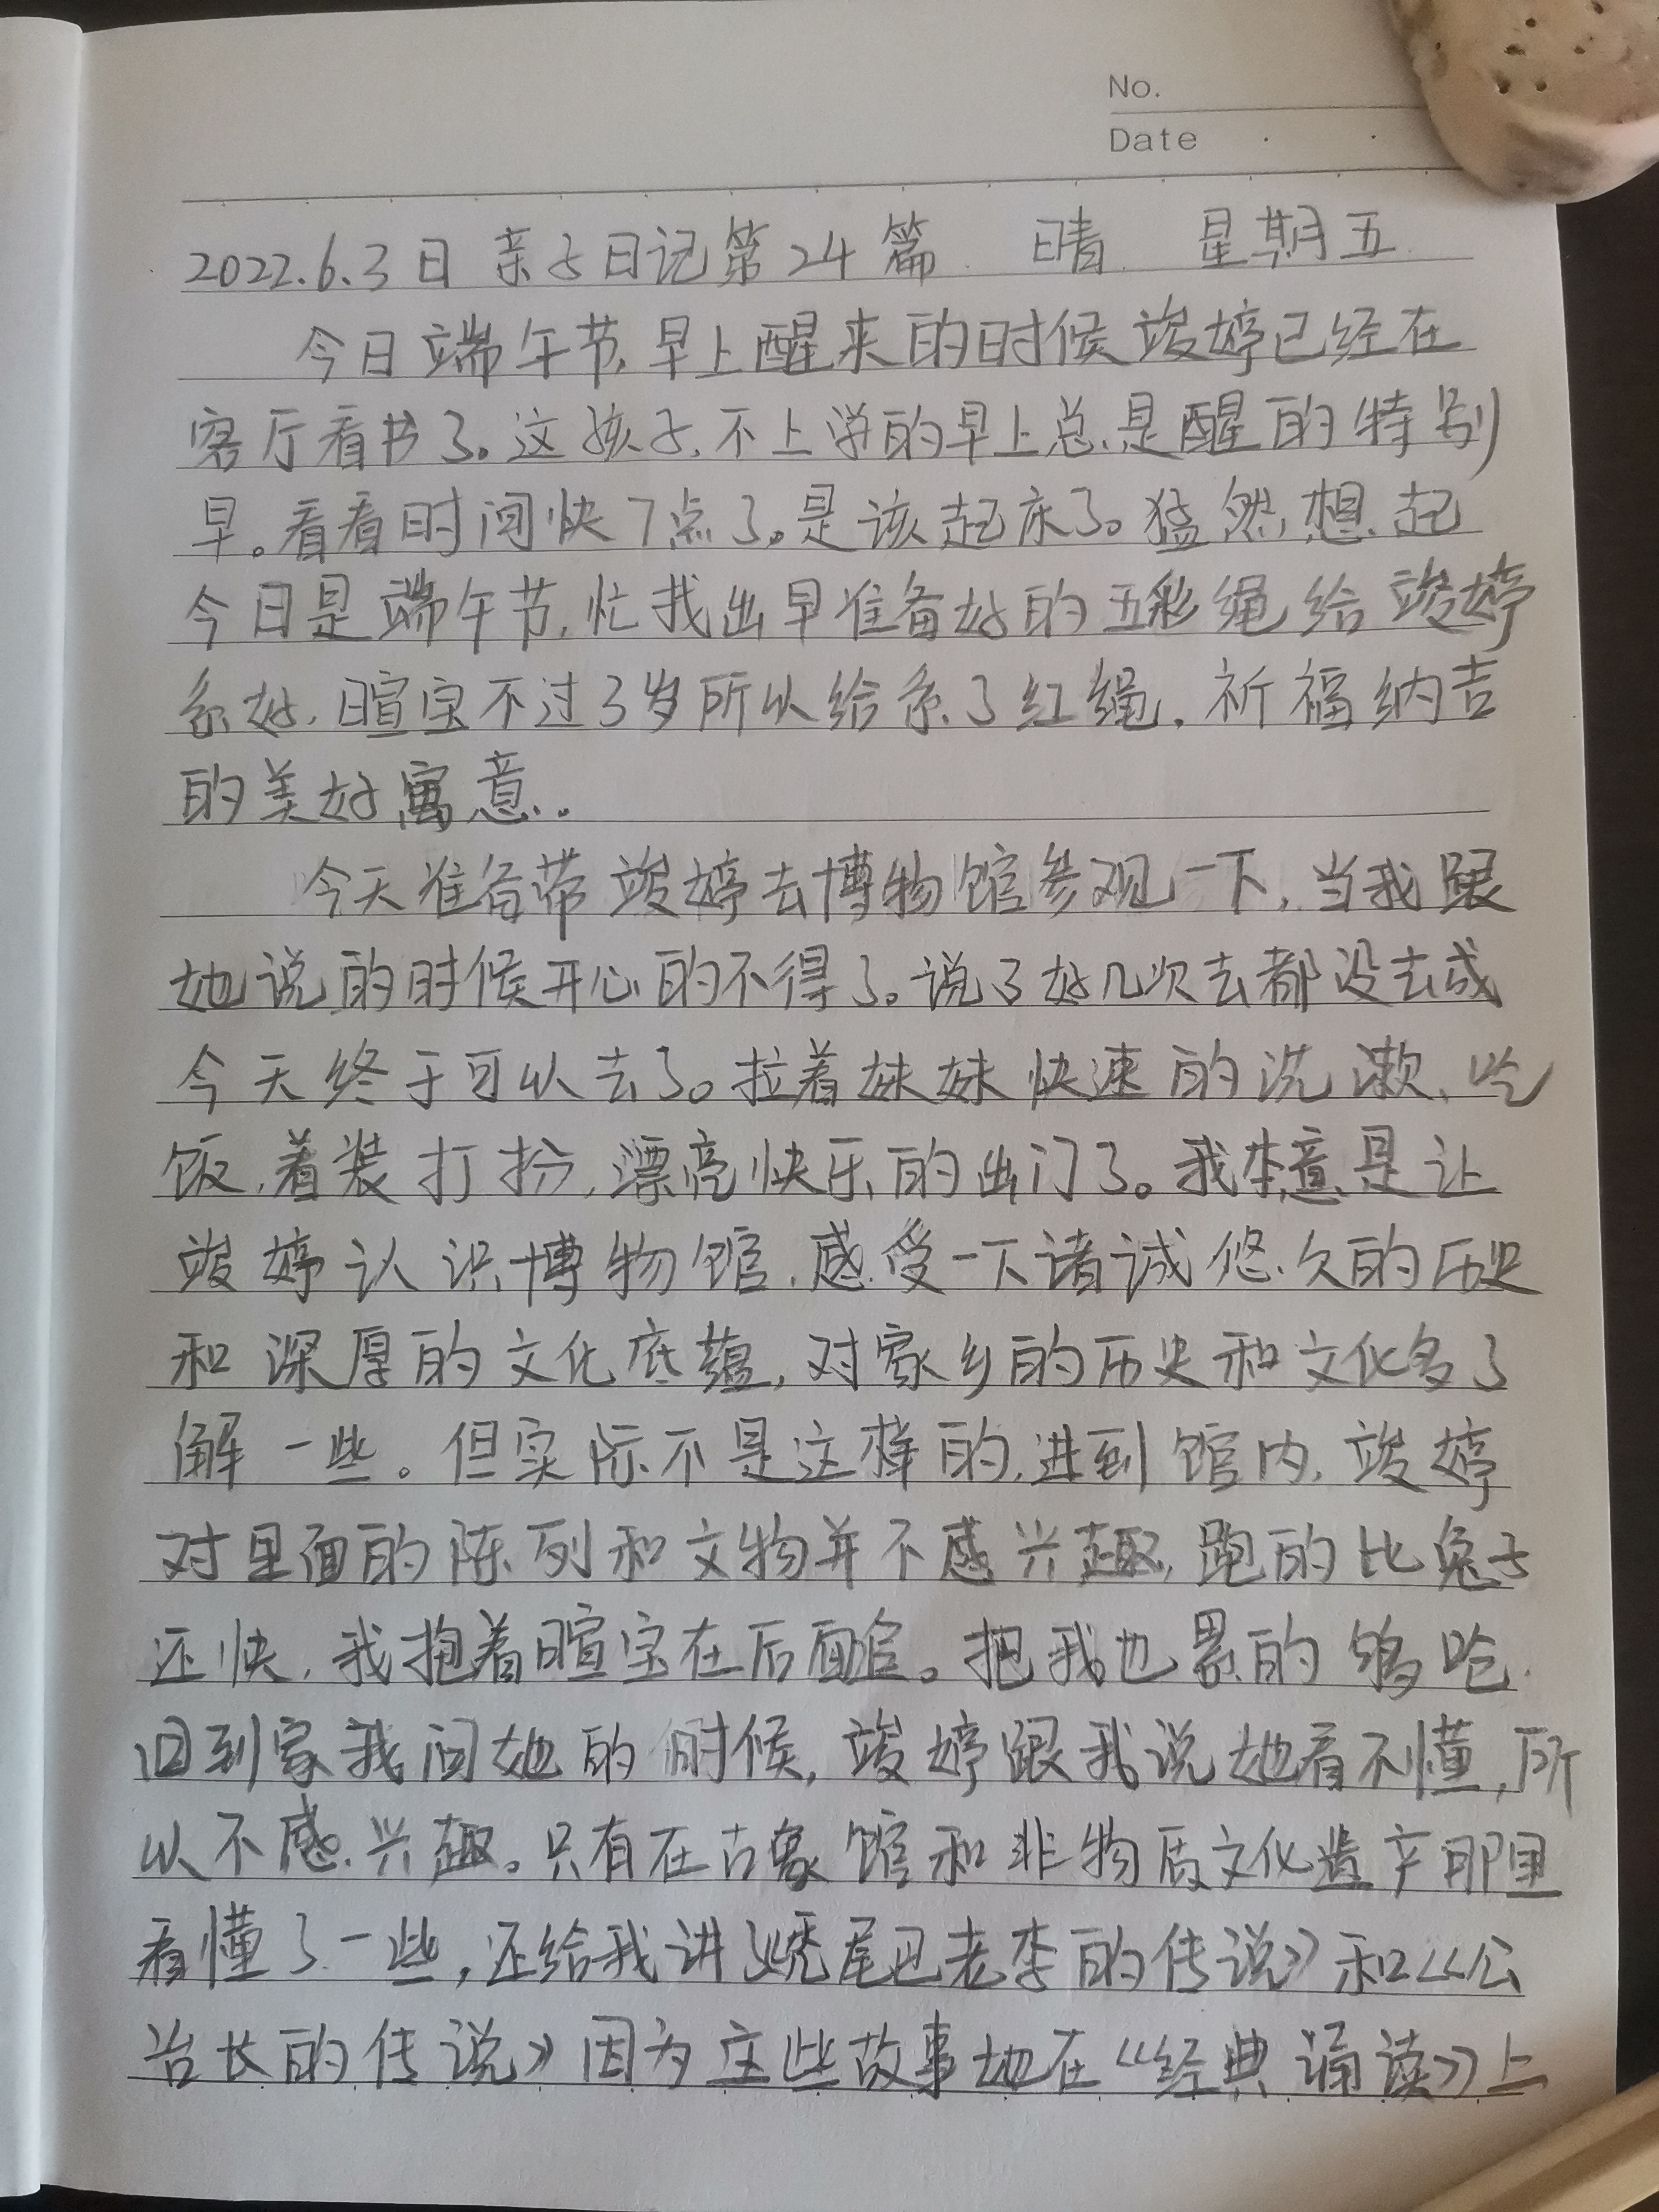 No.
Date
2022.6.3日 亲子日记第24篇 晴 星期五
今日端午节,早上醒来的时候竣婷已经在
客厅看书了。这孩子,不上学的早上总是醒的特别
早。看看时间快7点了。是该起床了。猛然想起
今日是端午节,忙找出早准备好的五彩绳给竣婷
系好,暄宝不过3岁所以给系了红绳,祈福纳吉
的美好寓意。
今天准备带竣婷去博物馆参观一下,当我跟
她说的时候开心的不得了。说了好几次去都没去成
今天终于可以去了。拉着妹妹快速的洗漱、吃
饭,着装打扮,漂亮快乐的出门了。我本意是让
竣婷认识博物馆,感受一下诸诚悠久的历史
和深厚的文化底蕴,对家乡的历史和文化多了
解一些。但实际不是这样的,进到馆内,竣婷
对里面的陈列和文物并不感兴趣,跑的比兔子
还快,我抱着暄宝在后面追。把我也累的够呛.
回到家我问她的时候,竣婷跟我说她看不懂,所
以不感兴趣。只有在古象馆和非物质文化遗产那里
看懂了一些,还给我讲了《秃尾巴老李的传说》和《公
冶长的传说》因为这些故事她在《经典诵读》上